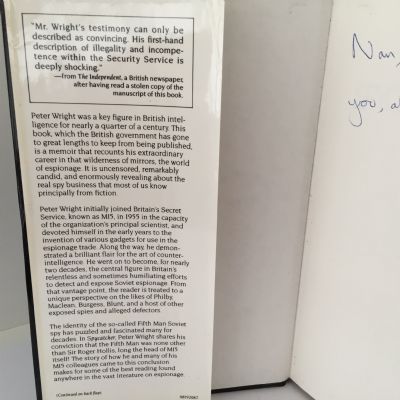 "Mr. Wright's testimony can only be
described as convincing. His first-hand
description of illegality and incompe-
tence within the Security Service is
deeply shocking."
—from The Independent, a British newspaper,
after having read a stolen copy of the
manuscript of this book.
Peter Wright was a key figure in British intel-
ligence for nearly a quarter of a century. This
book, which the British government has gone
to great lengths to keep from being published,
is a memoir that recounts his extraordinary
career in that wilderness of mirrors, the world
of espionage. It is uncensored, remarkably
candid, and enormously revealing about the
real spy business that most of us know
principally from fiction.
Peter Wright initially joined Britain's Secret
Service, known as MI5, in 1955 in the capacity
of the organization's principal scientist, and
devoted himself in the early years to the
invention of various gadgets for use in the
espionage trade. Along the way, he demon-
strated a brilliant flair for the art of counter-
intelligence. He went on to become, for nearly
two decades, the central figure in Britain's
relentless and sometimes humiliating efforts
to detect and expose Soviet espionage. From
that vantage point, the reader is treated to a
unique perspective on the likes of Philby,
Maclean, Burgess, Blunt, and a host of other
exposed spies and alleged defectors.
The identity of the so-called Fifth Man Soviet
spy has puzzled and fascinated many for
decades. In Spycatcher, Peter Wright shares his
conviction that the Fifth Man was none other
than Sir Roger Hollis, long the head of MI5
itself! The story of how he and many of his
MI5 colleagues came to this conclusion
makes for some of the best reading found
anywhere in the vast literature on espionage.
(Continued on back flap)
Nan,
you, a